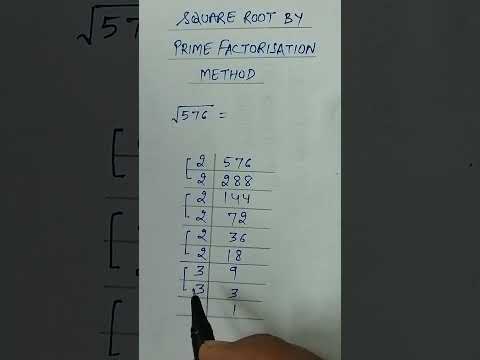 SQUARE ROOT BY
PRIME FACTORISATION
METHOD
√576 =
2 | 576
2 | 288
2 | 144
2 | 72
2 | 36
2 | 18
3 | 9
3 | 3
1